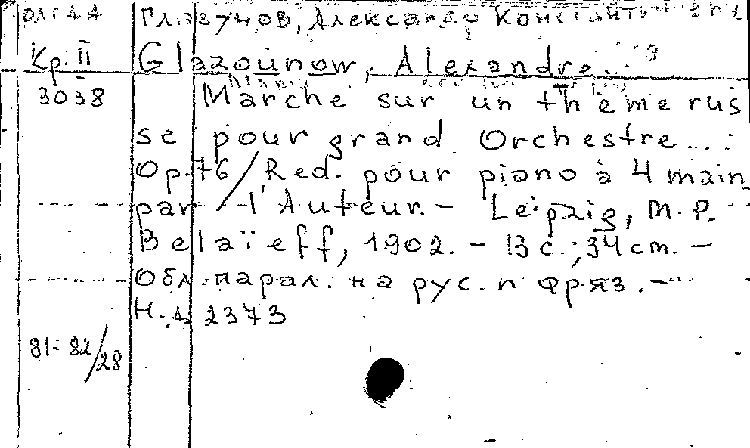 Глазунов, Александр Константи
Кр. II
Glazounow, Alexandre...
3038
Marche sur un thème rus
se pour grand Orchestre...
Op. 76 / Red. pour piano à 4 main
par l'Auteur. – Leipzig, M. P.
Belaïeff, 1902. – 13 с.; 34 cm. –
Обл. парал. на рус. и фр яз. –
Н. д. 2373
81-82/28